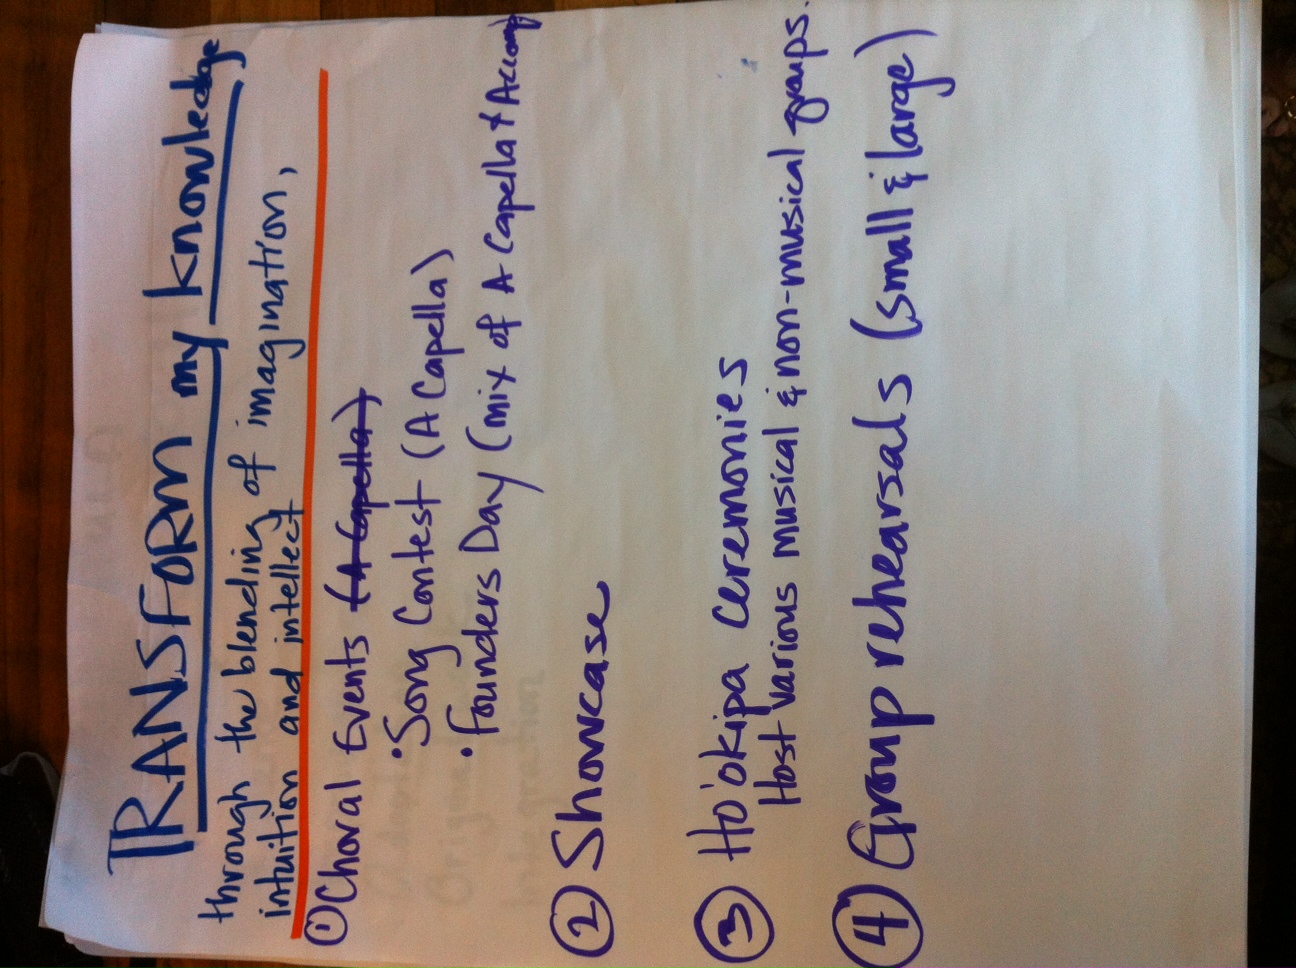 TRANSFORM my knowledge
through the blending of imagination,
intuition and intellect
① Choral Events (A Capella)
• Song Contest (A Capella)
• Founders Day (mix of A Capella & Accomp)
② Showcase
③ Ho'okipa Ceremonies
Host various musical & non-musical groups.
④ Group rehearsals (small & large)